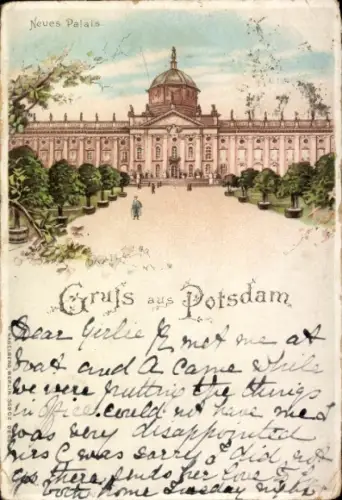 Neues Palais
Gruss aus Potsdam
Dear Girlie E. met me at
boat and A came while
we were putting the things
in office could not have me I
was very disappointed
Mrs C was sorry I did not
go there, sends her love to
both home Tuesday night